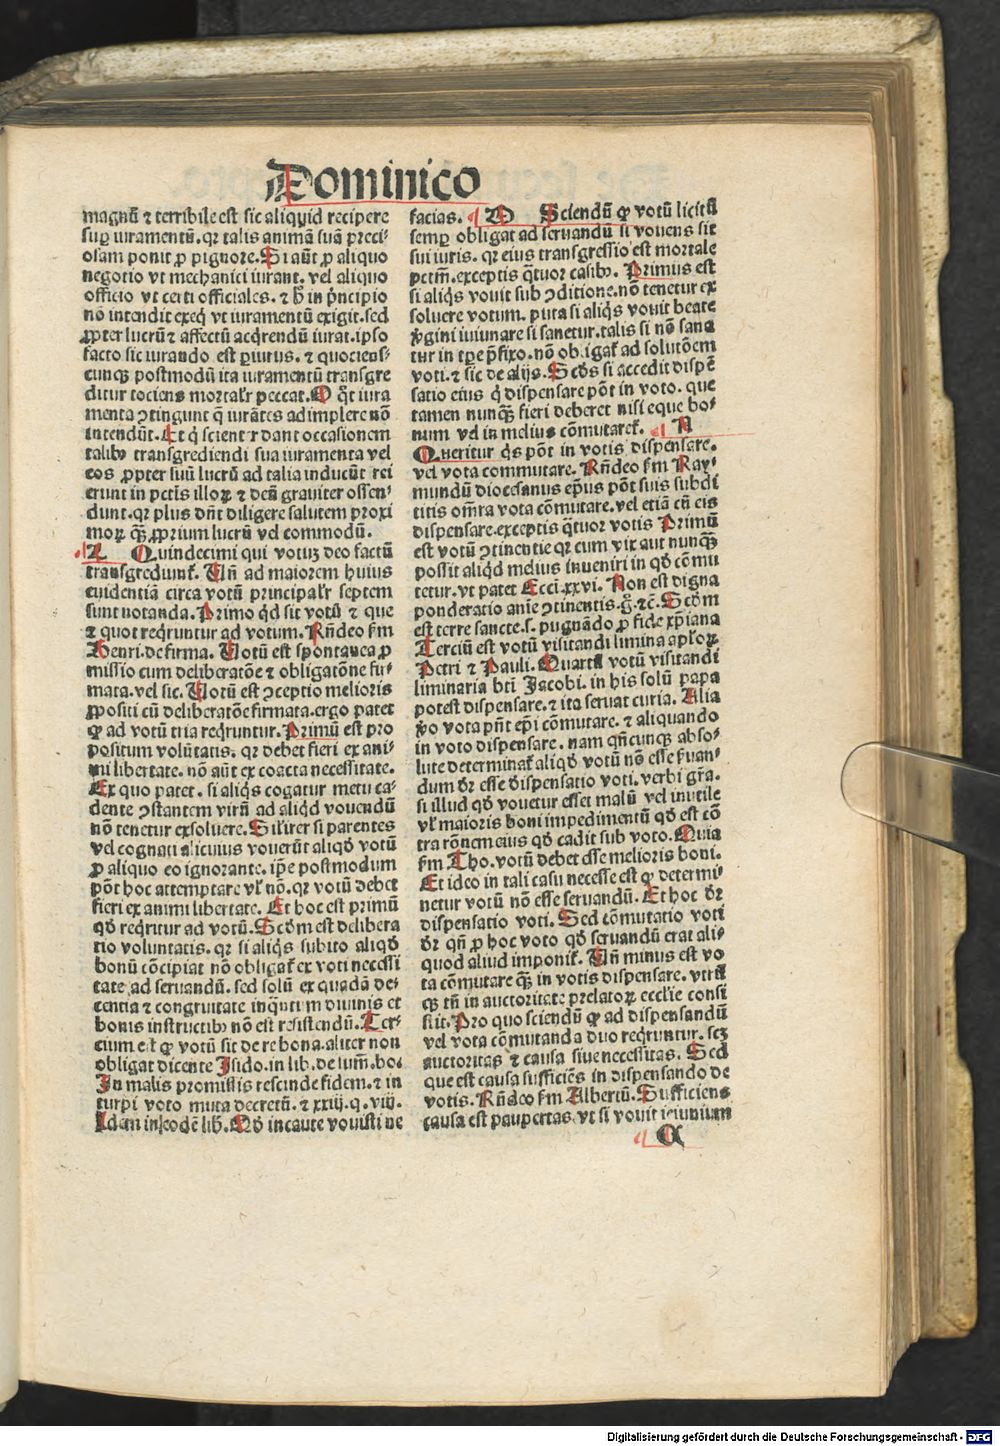 Dominico
magnū ⁊ terribile est sic aliquid recipere
suꝑ iuramentū. qꝛ talis animā suā preci⸗
osam ponit ꝓ pignore. Si aūt ꝓ aliquo
negotio vt mechanici iurant. vel aliquo
officio vt certi officiales. ⁊ hͦ in pͥncipio
nō intendit exeqͥ vt iuramentū exigit. sed
ꝓpter lucrū ⁊ affectū acqͥrendū iurat. ipso
facto sic iurando est ꝑiurus. ⁊ quociens⸗
cunqꝫ postmodū ita iuramentū transgre
ditur tociens mortalʳr peccat. O qͦt iura
menta ꝯtingunt q̄ iurātes adimplere nō
intendūt. Et qͥ scientʳr dant occasionem
talibꝰ transgrediendi sua iuramenta vel
eos ꝓpter suū lucrū ad talia inducūt rei
erunt in pctīs illoꝝ ⁊ deū grauiter offen⸗
dunt. qꝛ plus dn̄t diligere salutem proxi
moꝝ qꝫ̄ ꝓprium lucrū vel commodū.
L Quindecimi qui votuꝫ deo factū
transgrediunt᷑. Vn̄ ad maiorem huius
euidentiā circa votū principalʳr septem
sunt notanda. Primo qͥd sit votū ⁊ que
⁊ quot reqͥruntur ad votum. Rn̄deo ẜm
Henri. de firma. Votū est spontanea ꝓ
missio cum deliberatōe ⁊ obligatōne fir⸗
mata. vel sic. Votū est ꝯceptio melioris
ꝓpositi cū deliberatōe firmata. ergo patet
ꝙ ad votū tria reqͥruntur. Primū est pro
positum volūtatis. qꝛ debet fieri ex ani⸗
mi libertate. nō aūt ex coacta necessitate.
Ex quo patet. si aliqͥs cogatur metu ca⸗
dente ꝯstantem virū ad aliqͥd vouendū
nō tenetur exsoluere. Silʳiter si parentes
vel cognati alicuius vouerūt aliqͦd votū
ꝓ aliquo eo ignorante. ip̄e postmodum
pōt hoc attemptare vlʳ nō. qꝛ votū debet
fieri ex animi libertate. Et hoc est primū
qͦd reqͥritur ad votū. Scḋm est delibera
tio voluntatis. qꝛ si aliqͥs subito aliqͦd
bonū cōcipiat nō obligat᷑ ex voti necessi
tate ad seruandū. sed solū ex quadā de⸗
centia ⁊ congruitate inqͣntum diuinis et
bonis instructibꝰ nō est resistendū. Ter⸗
cium est ꝙ votū sit de re bona. aliter non
obligat dicente Isido. in lib. de sum̄. bo.
In malis promissis rescinde fidem. ⁊ in
turpi voto muta decretū. ⁊ xxiij. q. viij.
Idem in eodē libͦ. Qͦd incaute vouisti ne
facias. O Sciendū ꝙ votū licitū
semꝑ obligat ad seruandū si vouens sit
sui iuris. qꝛ eius transgressio est mortale
pctm̄. exceptis qͣtuor casibꝰ. Primus est
si aliqͥs vouit sub ꝯditione. nō tenetur ex
soluere votum. puta si aliqͥs vouit beate
v̓gini ieiunare si sanetur. talis si nō sana
tur in tꝑe p̄fixo. nō obligat᷑ ad solutōem
voti. ⁊ sic de alijs. Scḋs si accedit dispē
satio eius qͥ dispensare pōt in voto. que
tamen nunqꝫ̄ fieri deberet nisi eque bo⸗
num vel in melius cōmutaret᷑. N
Queritur qͥs pōt in votis dispensare.
vel vota commutare. Rn̄deo ẜm Ray⸗
mundū diocesanus ep̄us pōt suis subdi
titis om̄ia vota cōmutare. vel etiā cū eis
dispensare. exceptis qͣtuor votis Primū
est votū ꝯtinentie qꝛ cum vix aut nunqꝫ̄
possit aliqͥd melius inueniri in qͦd cōmu
tetur. vt patet Ecci. xxvi. Non est digna
ponderatio anīe ꝯtinentis. gͦ. ⁊c̄. Scḋm
est terre sancte. s. pugnādo ꝓ fide xp̄iana
Terciū est votū visitandi limina apl̓oꝝ
Petri ⁊ Pauli. Quartū votū visitandi
liminaria bti Jacobi. in his solū papa
potest dispensare. ⁊ ita seruat curia. Alia
v̓o vota pn̄t ep̄i cōmutare. ⁊ aliquando
in voto dispensare. nam qn̄cunqꝫ abso⸗
lute determinat᷑ aliqͦd votū nō esse ẜuan⸗
dum dʳr esse dispensatio voti. verbi gr̄a.
si illud qͦd vouetur esset malū vel inutile
vlʳ maioris boni impedimentū qͦd est cō
tra rōnem eius qͦd cadit sub voto. Quia
ẜm Tho. votū debet esse melioris boni.
Et ideo in tali casu necesse est ꝙ determi⸗
netur votū nō esse seruandū. Et hoc dʳr
dispensatio voti. Sed cōmutatio voti
dʳr qn̄ ꝓ hoc voto qͦd seruandū erat ali⸗
quod aliud imponit᷑. Vn̄ minus est vo
ta cōmutare qꝫ̄ in votis dispensare. vtrū
qꝫ tn̄ in auctoritate prelatoꝝ ecclʳie consi
stit. Pro quo sciendū ꝙ ad dispensandū
vel vota cōmutanda duo reqͥruntur. scꝫ
auctoritas ⁊ causa siue necessitas. Sed
que est causa sufficiēs in dispensando de
votis. Rn̄deo ẜm Albertū. Sufficiens
causa est paupertas. vt si vouit ieiunium
C
Digitalisierung gefördert durch die Deutsche Forschungsgemeinschaft - DFG